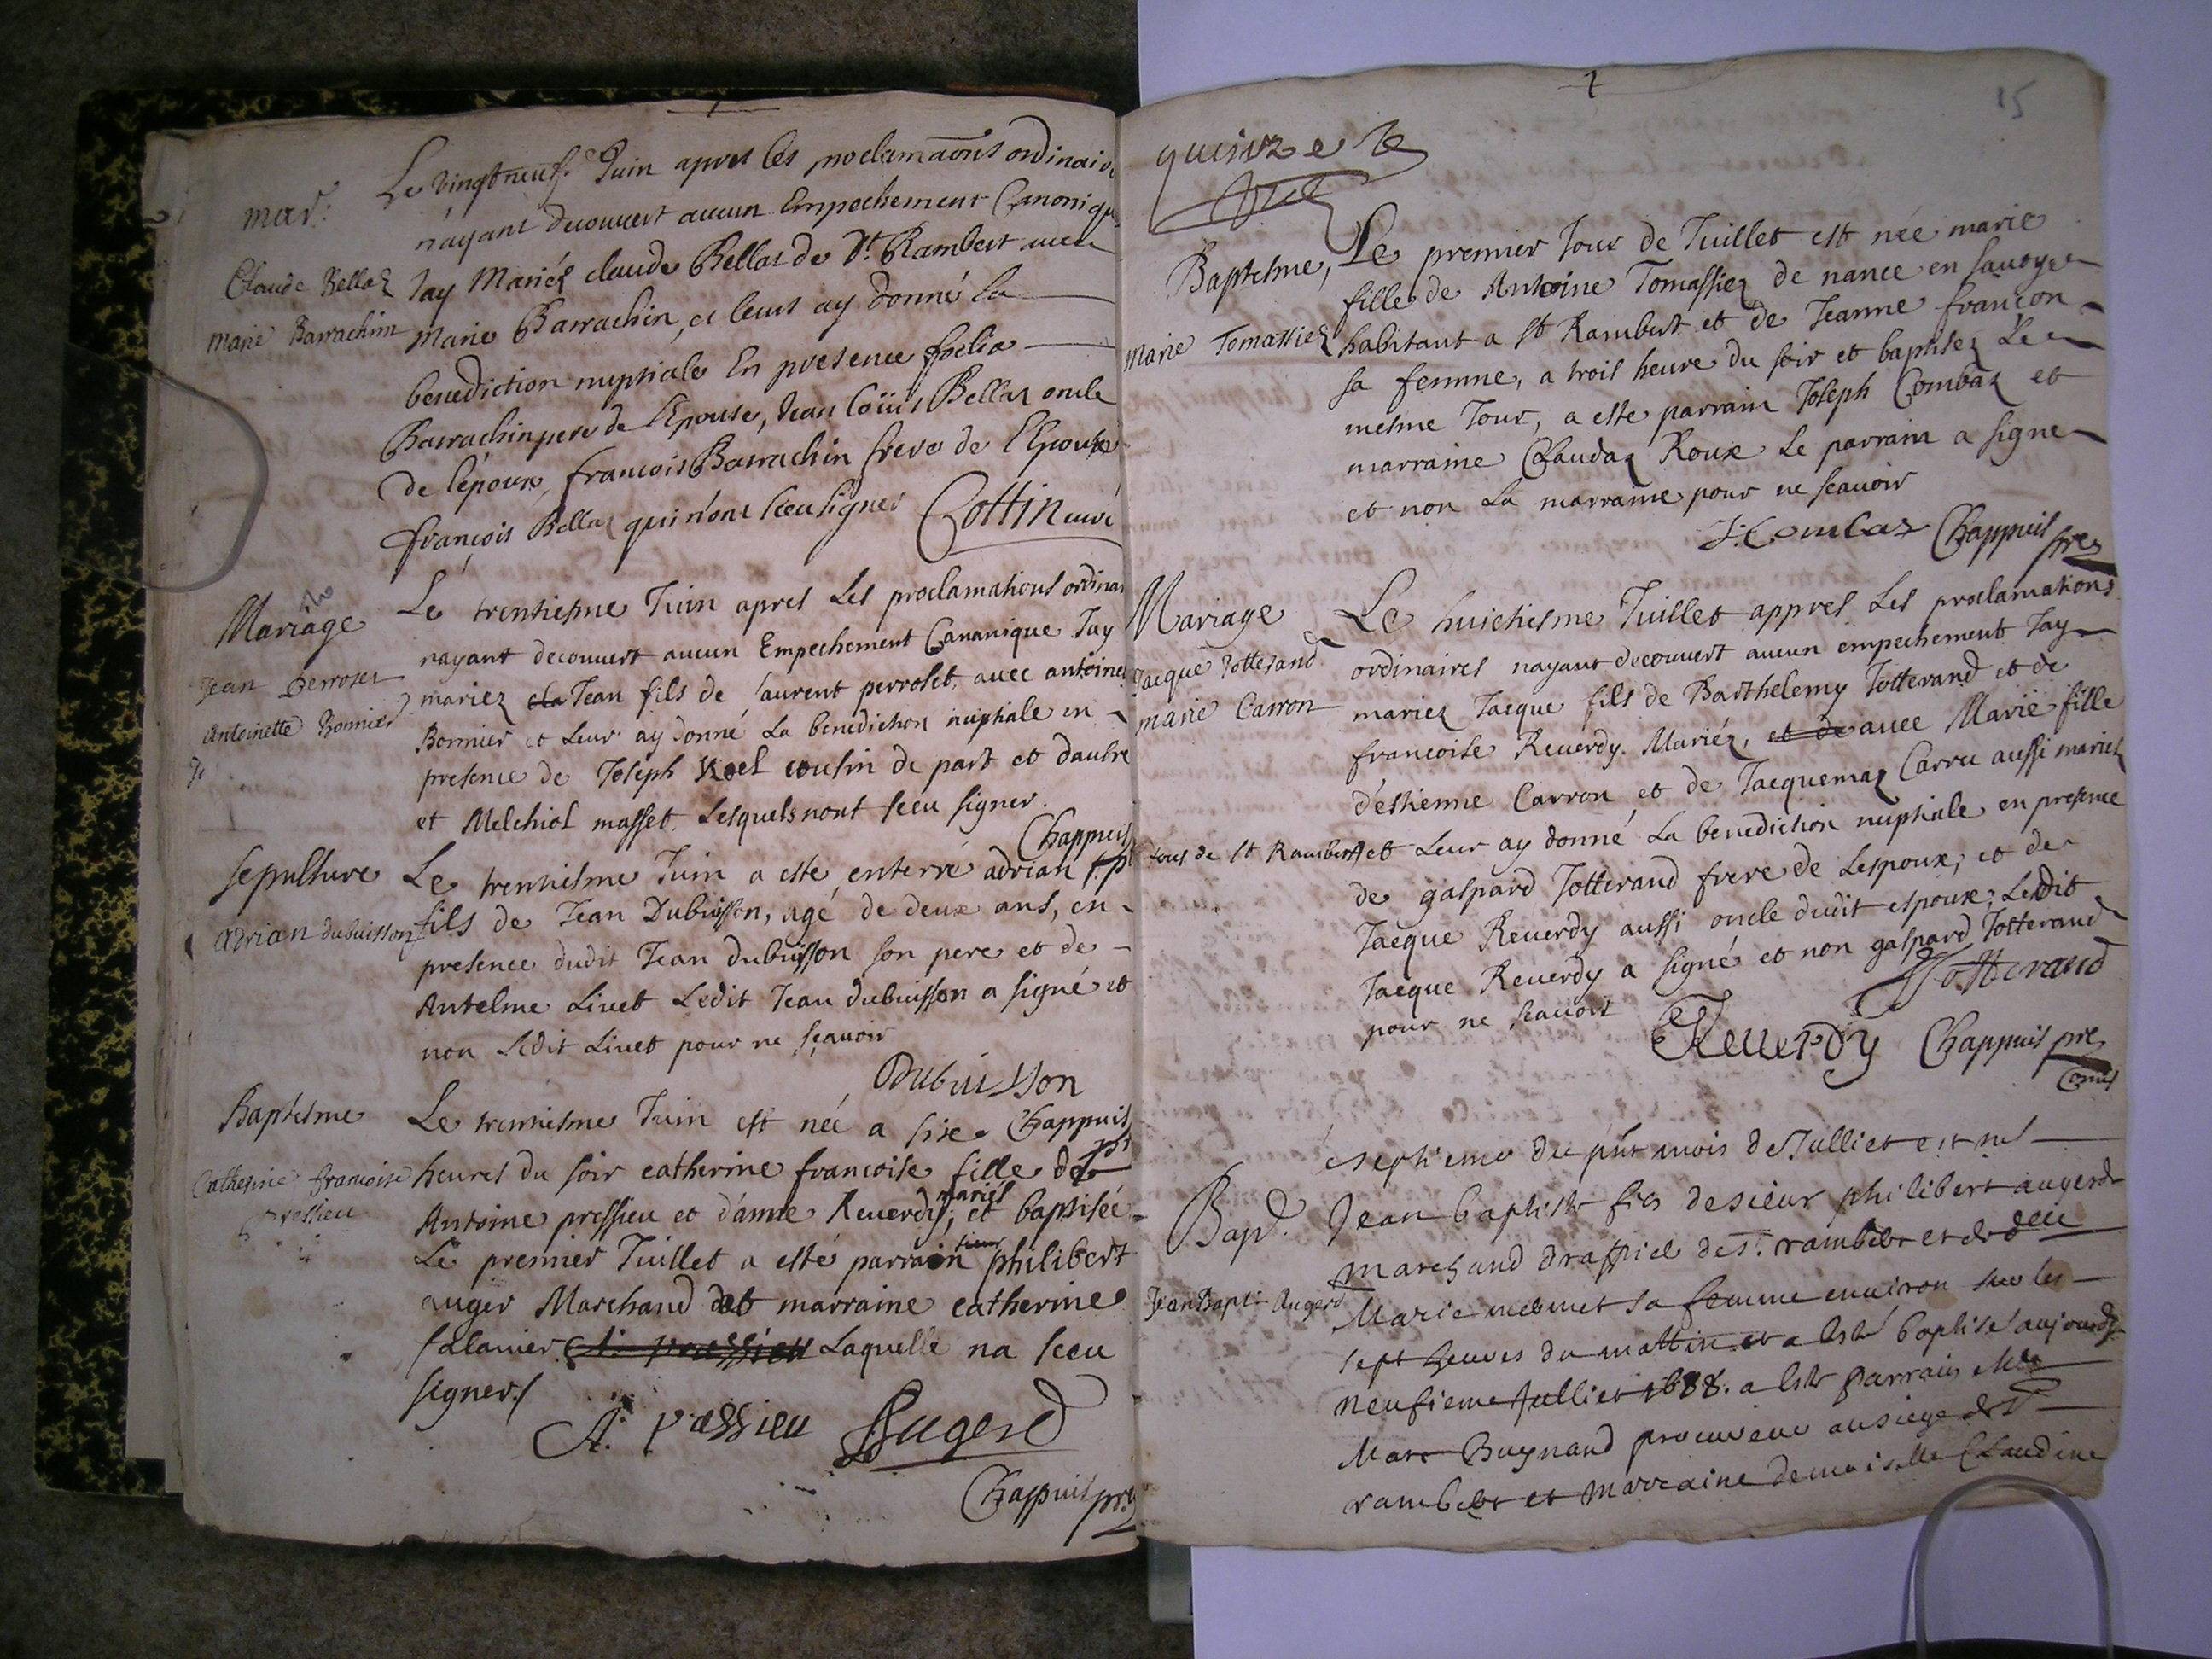 mar:
Claude Bellaz
marie Barrachin
Le vingt neuf.e Juin apres les proclamaons ordinaire
n'ayant decouvert aucun Empechement Canonique
Jay Mariéz claude Bellaz de St. Rambert avec
Marie Barrachin, et leurs ay donné la
benediction nuptiale En presence foelix
Barrachin pere de l'Epouse, Jean Loüis Bellaz oncle
de l'époux, francois Barrachin frere de l'Epouse
françois Bellaz qui n'ont sceu signer Cottin curé
Mariage
Jean Perroset
Antoinette Bonnier
Le trentiesme Juin apres Les proclamations ordinai
nayant decouvert aucun Empechement Cananique Jay
mariez Jean fils de laurent perroset, avec antoine
Bonnier et Leur ay donné La benediction nuptiale en
presence de Joseph Noel cousin de part et dautre
et Melchiol masset Lesquels nont sceu signer.
Chappuis
sepulture
adrian dubuisson
Le trentiesme Juin a esté enterré adrian
fils de Jean Dubuisson, agé de deux ans, en
presence dudit Jean dubuisson son pere et de
Antelme Livet Ledit Jean dubuisson a signé et
non Ledit Livet pour ne sçavoir
Dubuisson
Chappuis
Baptesme
Catherine francoise
pressieu
Le trentiesme Juin est née a sixe
heures du soir catherine francoise fille de
Antoine pressieu et d'anne Reverdy, mariés et baptisée
Le premier Juillet a esté parrain sieur philibert
auger Marchand et marraine catherine
falavier A. pressieu Laquelle na sceu
signer./
A. pressieu Augerd
Chappuis pre
15
quinze
Baptesme,
Marie Tomassiez
Le premier Jour de Juillet est née marie
fille de Antoine Tomassiez de nance en savoye
habitant a St Rambert et de Jeanne françon
sa femme, a trois heure du soir et baptisez Le
mesme Jour, a este parrain Joseph Combaz et
marraine Claudaz Roux Le parrain a signe
et non La marraine pour ne scavoir
J. Combaz Chappuis pre
Mariage
Jacque Jotterand
marie Carron
tous de St Rambert
Le huictiesme Juillet appres Les proclamations
ordinaires nayant decouvert aucun empechement Jay
mariez Jacque fils de Barthelemy Jotterand et de
francoise Reverdy. Mariéz, et de avec Marie fille
d'estienne Carron et de Jacquemaz Carru aussi mariez
et Leur ay donné La benediction nuptiale en presence
de gaspard Jotterand frere de Lespoux, et de
Jacque Reverdy aussi oncle dudit espoux, Ledit
Jacque Reverdy a signé et non gaspard Jotterand
pour ne scavoir
Jotterand
Reverdy Chappuis pre
Comis
Bap.
Jean Bapt. Augerd
septieme du pnt mois de Julliet est né
Jean baptiste fils de sieur philibert augerd
marchand drappier de St. rambert et de delle
Marie mebmet sa femme environ sur les
sept heures du mattin et a esté baptisé aujourdhuy
neufieme Julliet 1688. a esté parrain Me
Marc Buynand procureur au siege de St
rambert et marraine demoiselle Claudine